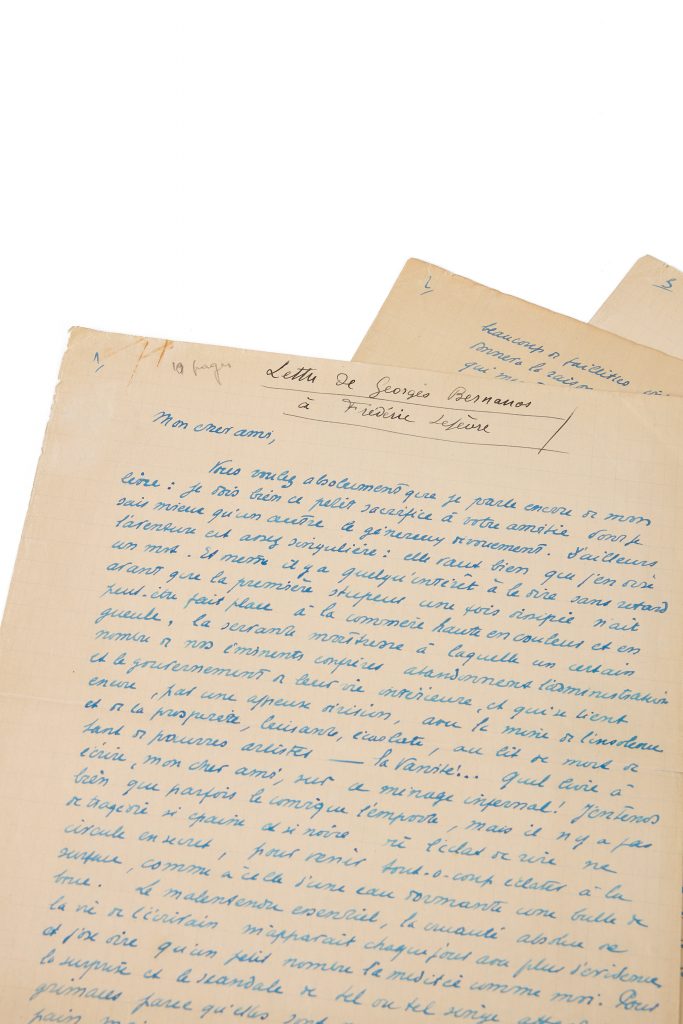 1)
10 pages
Lettre de Georges Bernanos
à Frédéric Lefèvre
Mon cher ami,
Vous voulez absolument que je parle encore de mon
livre : je dois bien ce petit sacrifice à votre amitié dont je
sais mieux qu'un autre le généreux dévouement. D'ailleurs
l'aventure est assez singulière : elle vaut bien que j'en dise
un mot. Et même il y a quelqu'intérêt à le dire sans retard
avant que la première stupeur une fois dissipée n'ait
peut-être fait place à la commère haute en couleurs et en
gueule, la servante maîtresse à laquelle un certain
nombre de nos éminents confrères abandonnent l'administration
et le gouvernement de leur vie intérieure, et qui se tient
encore, par une affreuse dérision, avec la mine de l'insolence
et de la prospérité, luisante, écarlate, au lit de mort de
tant de pauvres artistes — la Vanité!... Quel livre à
écrire, mon cher ami, sur ce ménage infernal! J'entends
bien que parfois le comique l'emporte, mais il n'y a pas
de tragédie si épaisse et si noire où l'éclat de rire ne
circule en secret, pour venir tout-à-coup éclater à la
surface, comme à celle d'une eau dormante une bulle de
boue. Le malentendu essentiel, la cruauté absolue de
la vie de l'écrivain m'apparaît chaque jour avec plus d'évidence
et j'ose dire qu'un petit nombre l'a médité comme moi. Pour
la surprise et le scandale de tel ou tel singe
grimaces parce qu'elles sont
pain
2)
beaucoup de faillites
donnera la raison
qui
3